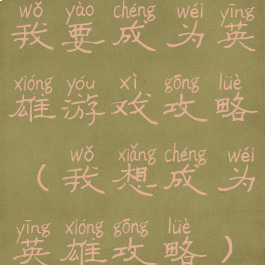 wǒ yào chéng wéi yīng
我要成为英
xióng yóu xì gōng lüè
雄游戏攻略
wǒ xiǎng chéng wéi
（我想成为
yīng xióng gōng lüè
英雄攻略）